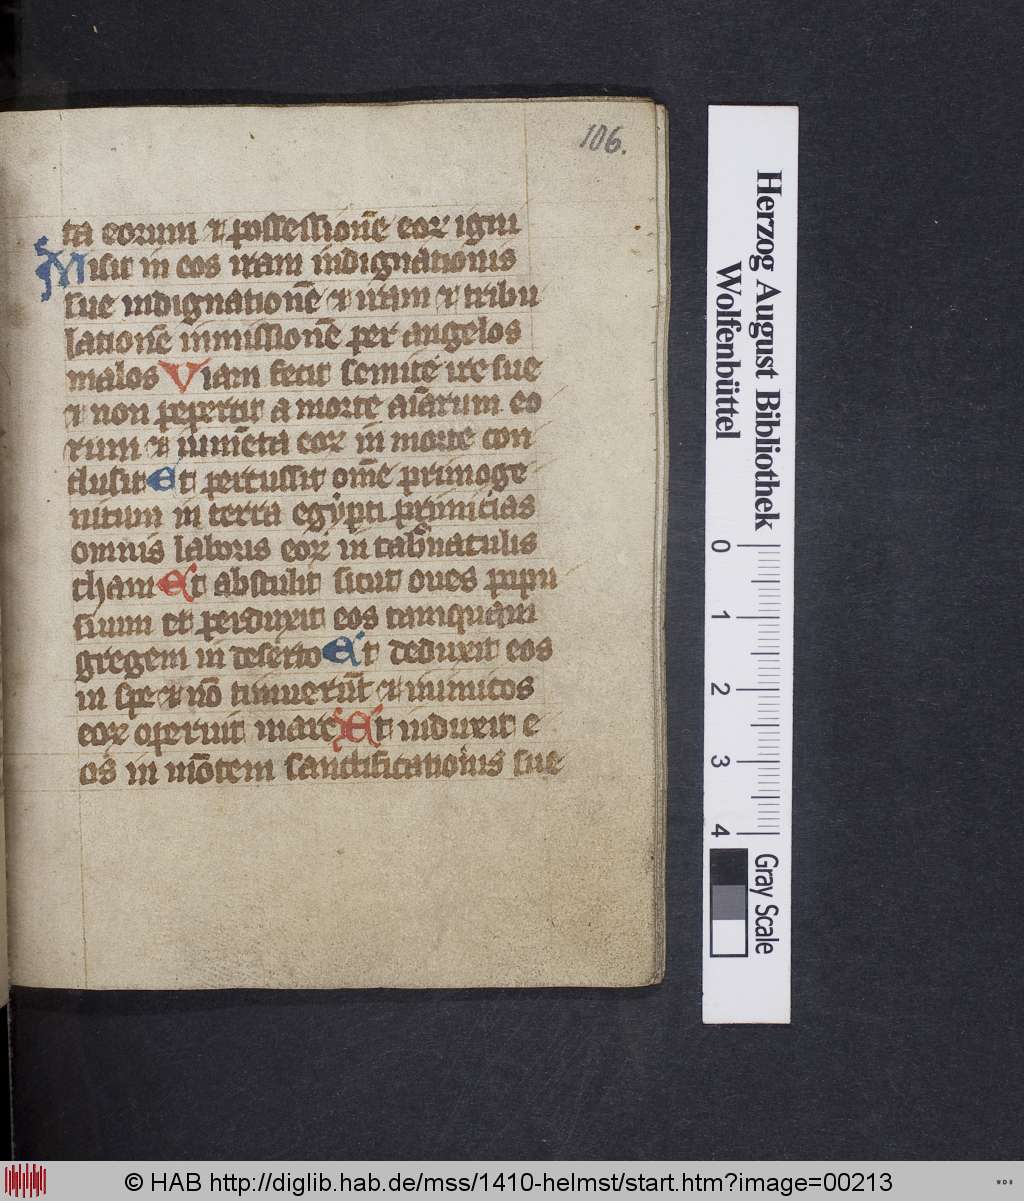 106.
ta eorum ⁊ possessionē eoꝝ igni
Misit in eos iram indignationis
sue indignationē ⁊ iram ⁊ tribu
lationē inmissionē per angelos
malos Viam fecit semite ire sue
⁊ non pepercit a morte aīarum eo
rum ⁊ iumēta eoꝝ in morte con
clusit Et percussit om̄e primoge
nitum in terra egypti primicias
omnis laboris eoꝝ in tab̄naculis
cham Et abstulit sicut oues popu
suum et perduxit eos tamquam
gregem in deserto Et deduxit eos
in spe ⁊ nō timuerūt ⁊ inimicos
eoꝝ operuit mare Et induxit e
os in mōtem sanctificationis sue
Herzog August Bibliothek
Wolfenbüttel
0 1 2 3 4
Gray Scale
© HAB http://diglib.hab.de/mss/1410-helmst/start.htm?image=00213